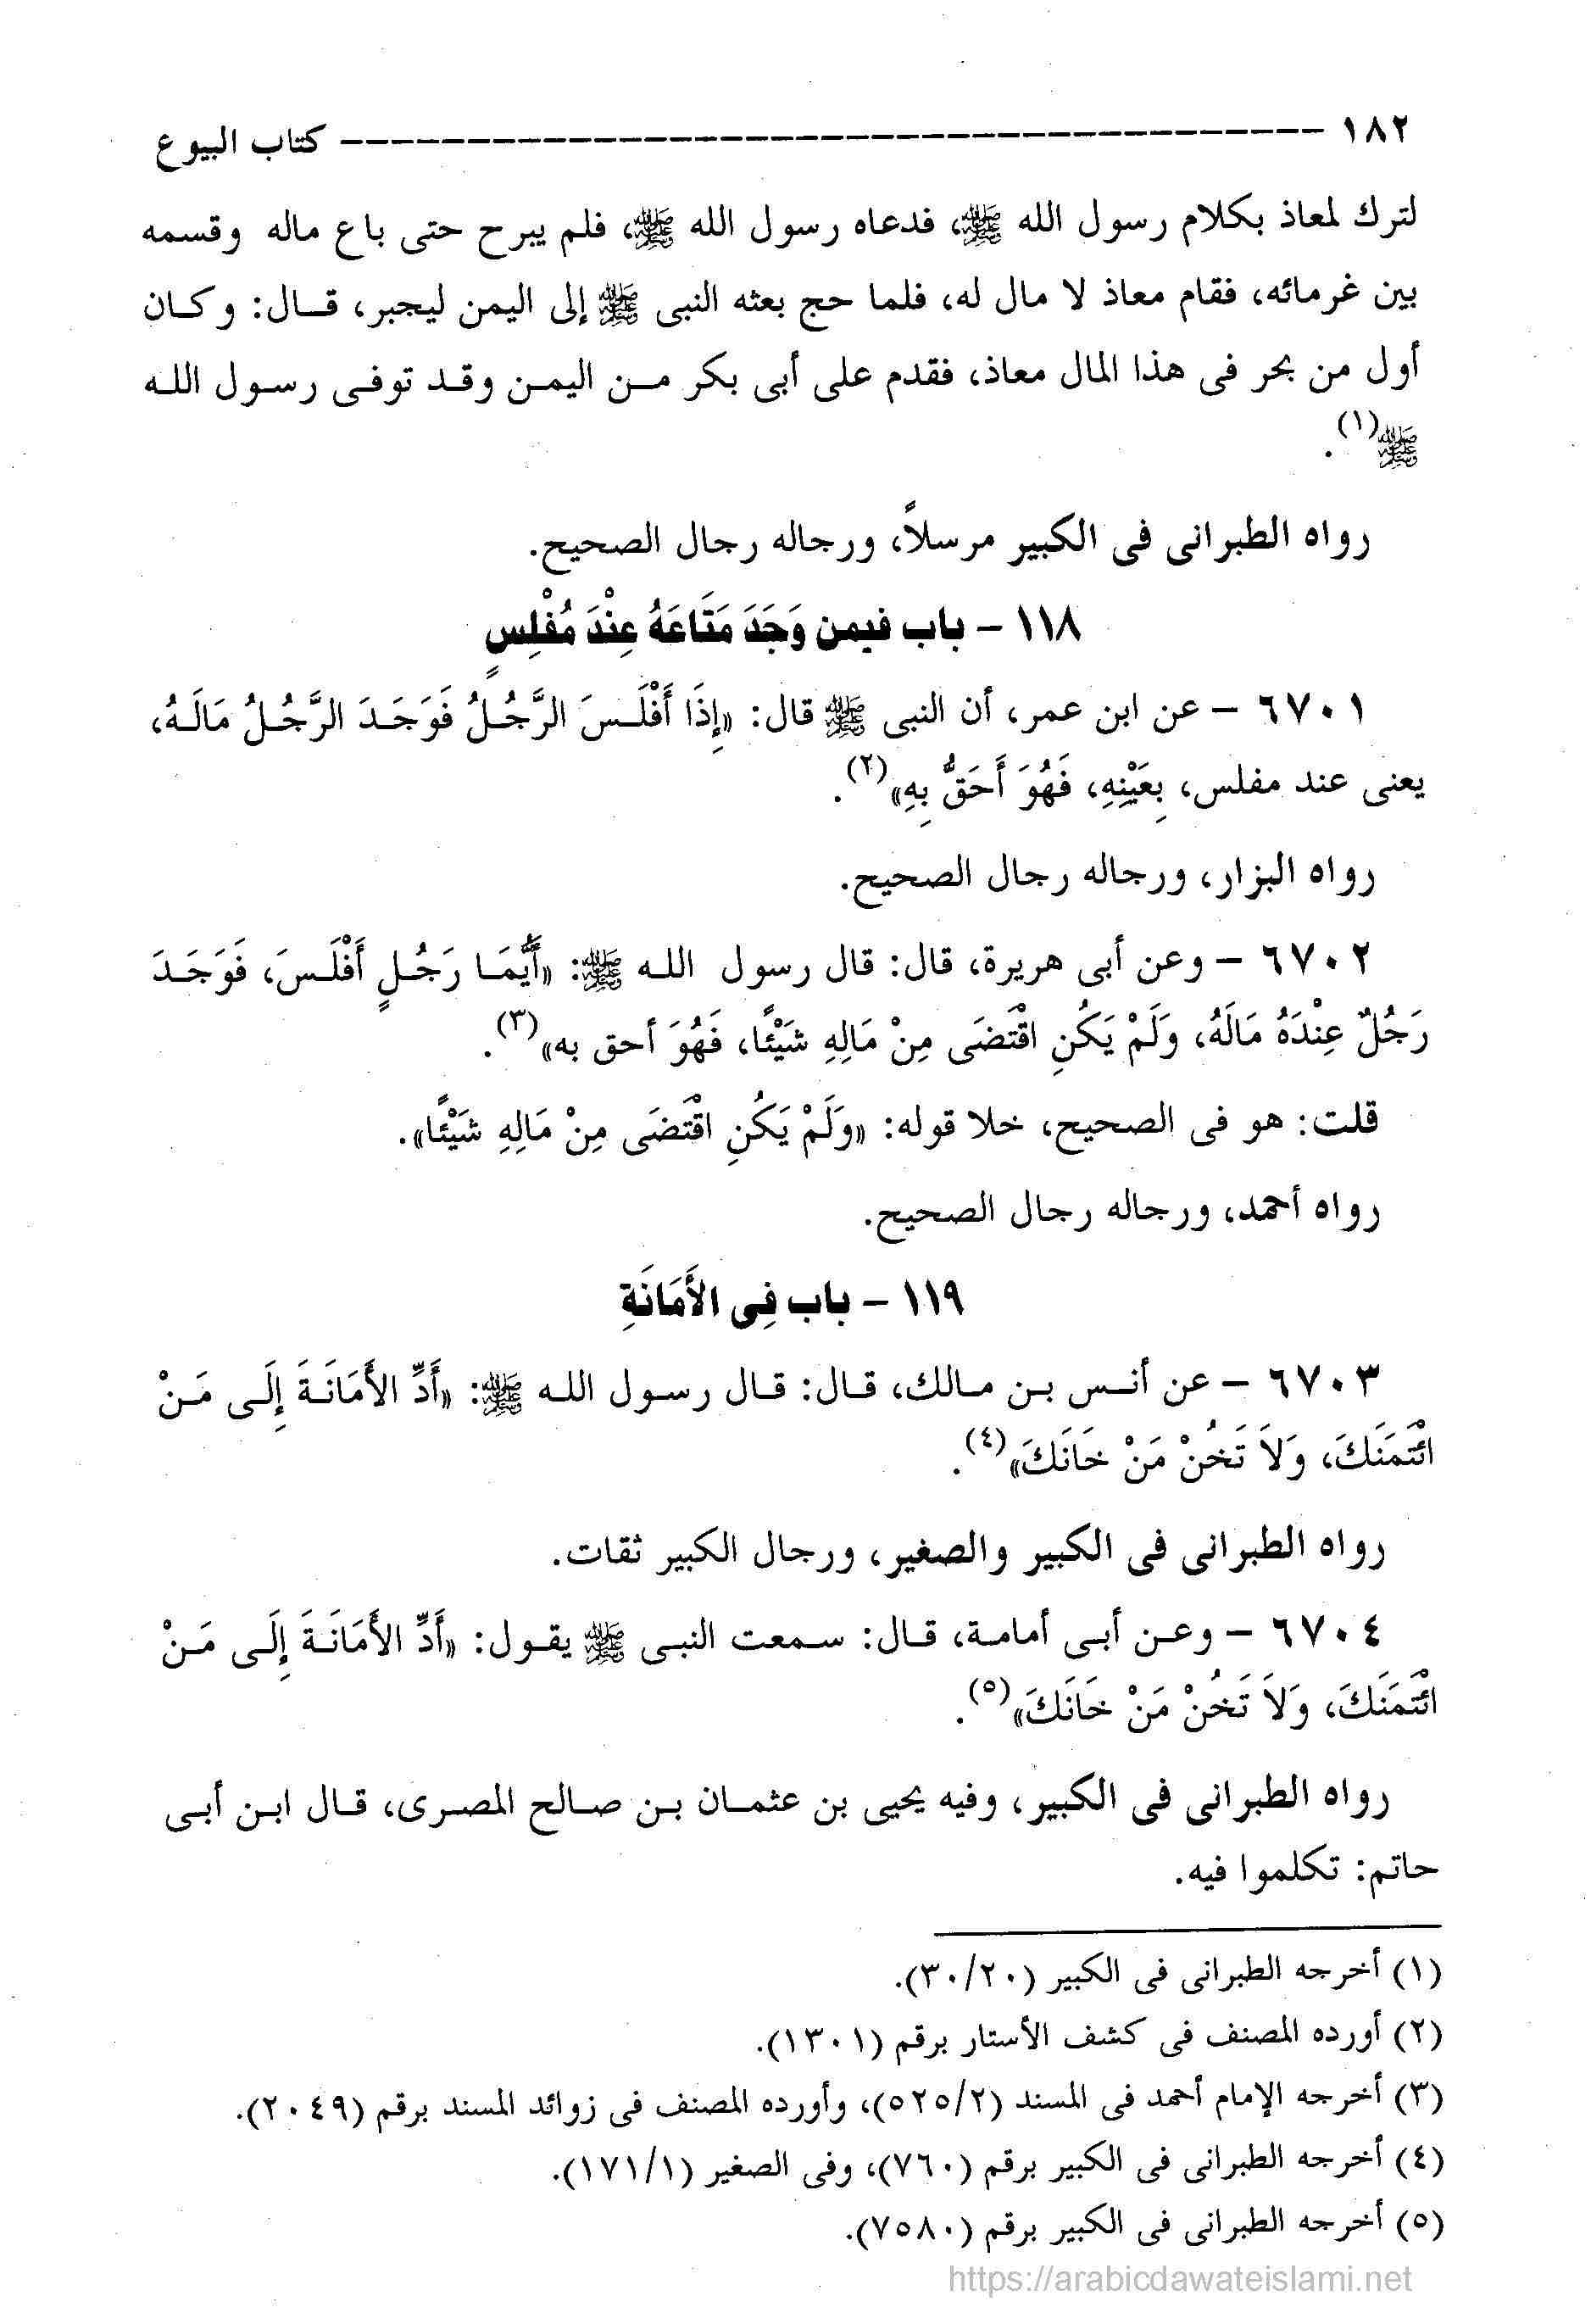 ١٨٢ ــــــــــــــــــــــــــــــــــــــــ كتاب البيوع
لترك لمعاذ بكلام رسول الله ﷺ، فدعاه رسول الله ﷺ، فلم يبرح حتى باع ماله وقسمه
بين غرمائه، فقام معاذ لا مال له، فلما حج بعثه النبى ﷺ إلى اليمن ليجبر، قال: وكان
أول من بحر فى هذا المال معاذ، فقدم على أبى بكر من اليمن وقد توفى رسول الله
ﷺ(١).
رواه الطبرانى فى الكبير مرسلاً، ورجاله رجال الصحيح.
١١٨ - باب فيمن وَجَدَ مَتَاعَهُ عِنْدَ مُفْلِسٍ
٦٧٠١ - عن ابن عمر، أن النبى ﷺ قال: «إِذَا أَفْلَسَ الرَّجُلُ فَوَجَدَ الرَّجُلُ مَالَهُ،
يعنى عند مفلس، بِعَيْنِهِ، فَهُوَ أَحَقُّ بِهِ»(٢).
رواه البزار، ورجاله رجال الصحيح.
٦٧٠٢ - وعن أبى هريرة، قال: قال رسول الله ﷺ: «أَيُّمَا رَجُلٍ أَفْلَسَ، فَوَجَدَ
رَجُلٌ عِنْدَهُ مَالَهُ، وَلَمْ يَكُنِ اقْتَضَى مِنْ مَالِهِ شَيْئًا، فَهُوَ أحق به»(٣).
قلت: هو فى الصحيح، خلا قوله: «وَلَمْ يَكُنِ اقْتَضَى مِنْ مَالِهِ شَيْئًا».
رواه أحمد، ورجاله رجال الصحيح.
١١٩ - باب فِى الأَمَانَةِ
٦٧٠٣ - عن أنس بن مالك، قال: قال رسول الله ﷺ: «أَدِّ الأَمَانَةَ إِلَى مَنْ
ائْتَمَنَكَ، وَلاَ تَخُنْ مَنْ خَانَكَ»(٤).
رواه الطبرانى فى الكبير والصغير، ورجال الكبير ثقات.
٦٧٠٤ - وعن أبى أمامة، قال: سمعت النبى ﷺ يقول: «أَدِّ الأَمَانَةَ إِلَى مَنْ
ائْتَمَنَكَ، وَلاَ تَخُنْ مَنْ خَانَكَ»(٥).
رواه الطبرانى فى الكبير، وفيه يحيى بن عثمان بن صالح المصرى، قال ابن أبى
حاتم: تكلموا فيه.
(١) أخرجه الطبرانى فى الكبير (٣٠/٢٠).
(٢) أورده المصنف فى كشف الأستار برقم (١٣٠١).
(٣) أخرجه الإمام أحمد فى المسند (٥٢٥/٢)، وأورده المصنف فى زوائد المسند برقم (٢٠٤٩).
(٤) أخرجه الطبرانى فى الكبير برقم (٧٦٠)، وفى الصغير (١٧١/١).
(٥) أخرجه الطبرانى فى الكبير برقم (٧٥٨٠).
https://arabicdawateislami.net